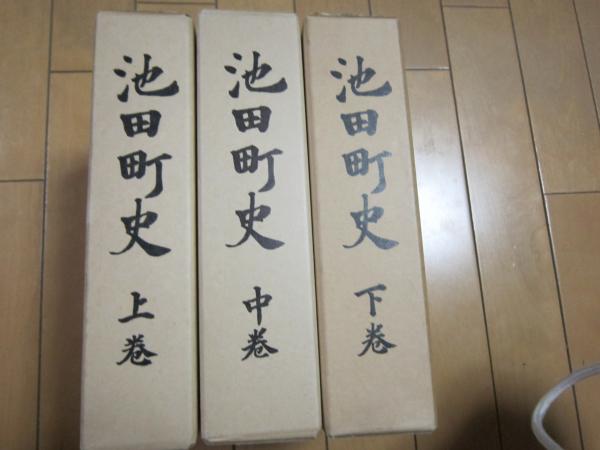 池田町史 上巻
池田町史 中巻
池田町史 下巻